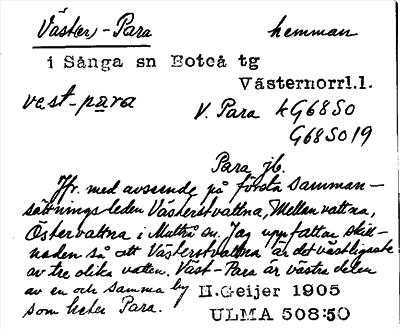 Väster-Para hemman
i Sånga sn Boteå tg
Västernorrl.l.
vest-para V. Para kG68S0
G68S019
Para jb.
Jfr. med avseende på första samman-
sättningsleden Västerstvattna, Mellanvattna,
Östervattna i Multrå sn. Jag uppfattar skill-
naden så att Västerstvattna är det västligaste
av tre olika vatten. Väst-Para är västra delen
av en och samma by H.Geijer 1905
som heter Para. ULMA 508:50